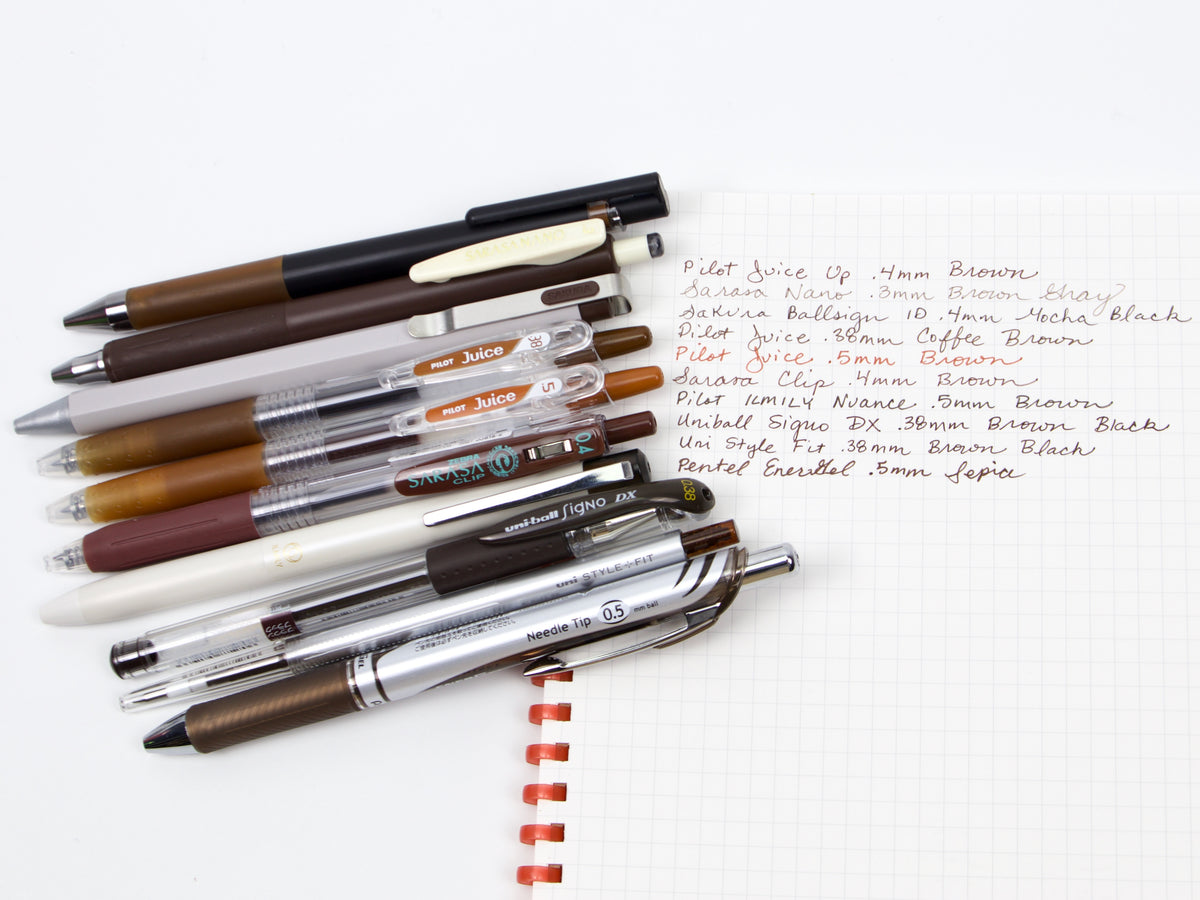 SARASA NANO
SAKURA
38
PILOT Juice
5
PILOT Juice
0.4
ZEBRA
SARASA
CLIP
uni-ball Signo DX
0.38
uni STYLE+FIT
Needle Tip 0.5 mm ball
Pilot Juice Up .4mm Brown
Sarasa Nano .3mm Brown Gray
Sakura Ballsign iD .4mm Mocha Black
Pilot Juice .38mm Coffee Brown
Pilot Juice .5mm Brown
Sarasa Clip .4mm Brown
Pilot ILMILY Nuance .5mm Brown
Uniball Signo DX .38mm Brown Black
Uni Style Fit .38mm Brown Black
Pentel EnerGel .5mm Sepia